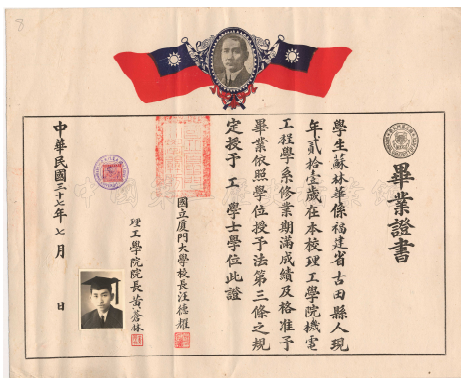 畢業證書
學生蘇林華係福建省古田縣人現
年貳拾壹歲在本校理工學院機電
工程學系修業期滿成績及格准予
畢業依照學位授予法第三條之規
定授予工學士學位此證
國立廈門大學校長汪德耀
理工學院院長黃蒼林
中華民國三十七年七月 日
8